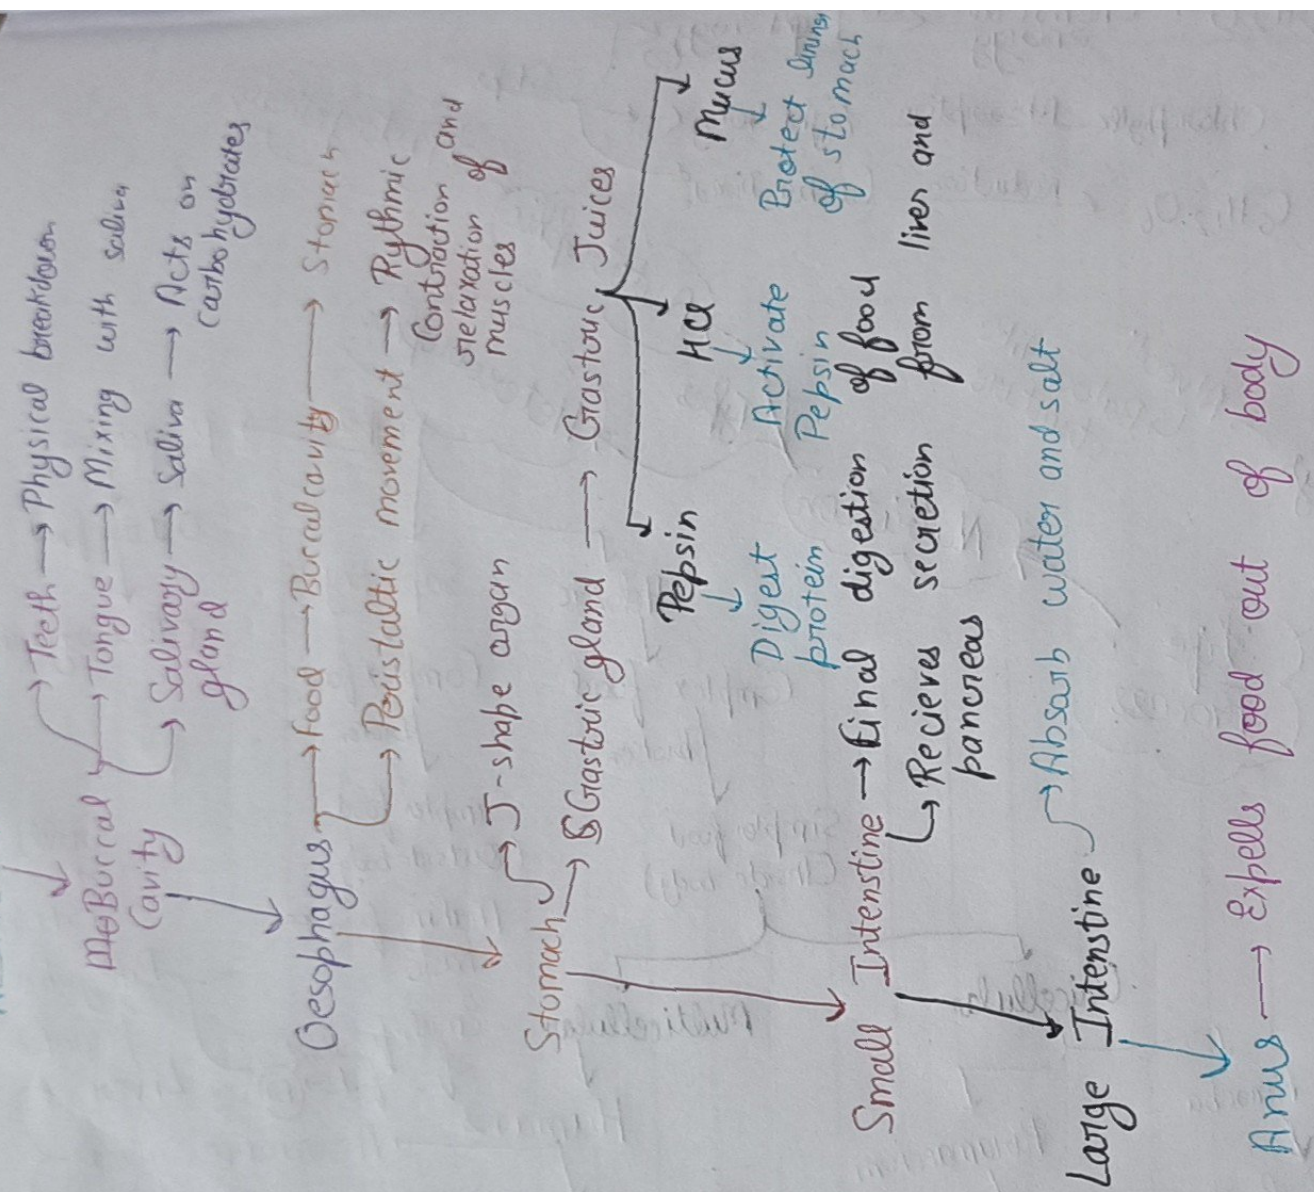 Teeth → Physical breakdown
Buccal Cavity
Tongue → Mixing with saliva
Salivary gland → Saliva → Acts on carbohydrates
Oesophagus
Food → Buccal cavity → Stomach
Peristaltic movement → Rythmic
Contraction and
relaxation of
muscles
Stomach
J-shape organ
Gastric gland → Gastric Juices
Pepsin
HCl
Mucus
Digest
protein
Activate
Pepsin
Protect lining
of stomach
Small Intenstine → Final digestion of food
Recieves secretion from liver and
pancreas
Large Intenstine
Absorb water and salt
Anus → Expells food out of body